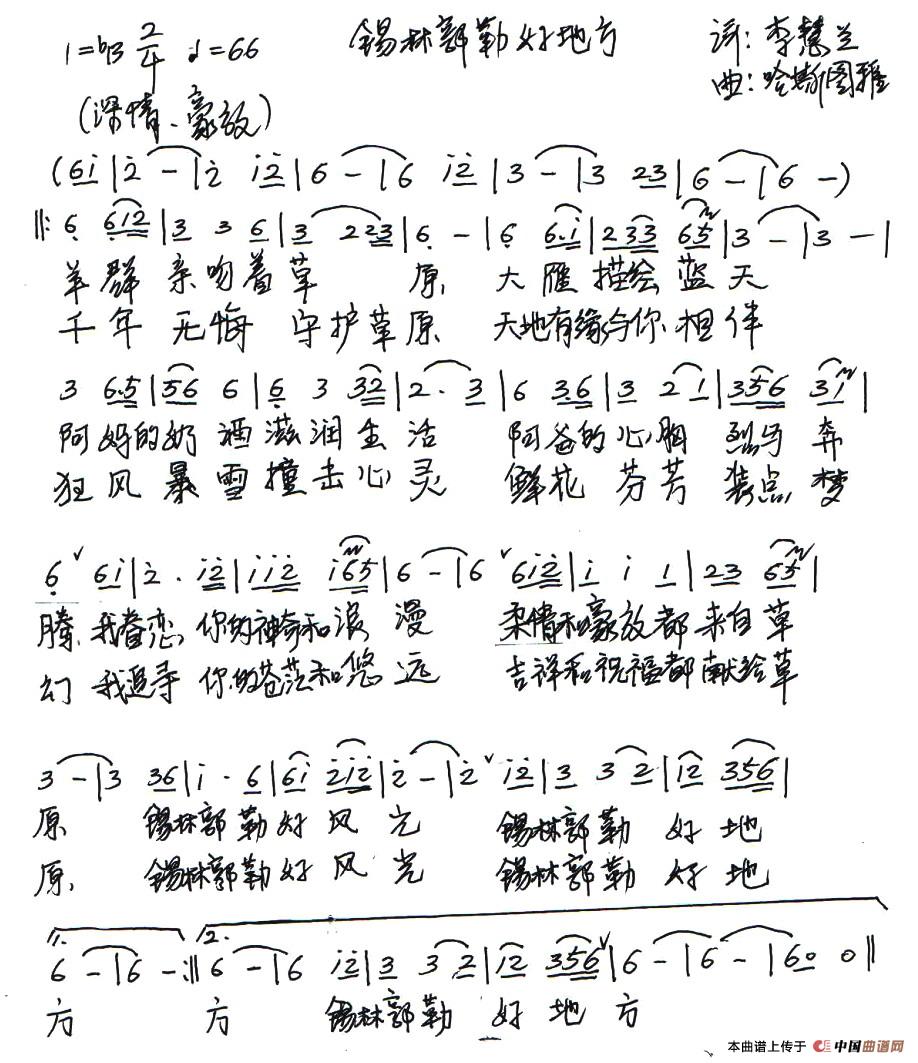 锡林郭勒好地方
1=♭B 2/4 ♩=66
词:李慧兰
曲:哈斯图雅
(深情、豪放)
(6i|2-|2 i2|6-|6 i2|3-|3 23|6-|6-)
‖:6 612|3 3 6|3 223|6-|6 6·i|233 65|3-|3-|
羊群亲吻着草原 大雁描绘蓝天
千年无悔守护草原 天地有缘与你相伴
3 6·5|56 6|6 3 32|2·3|6 3·6|3 2 1|356 31|
阿妈的奶酒滋润生活 阿爸的心胸烈马奔
狂风暴雪撞击心灵 鲜花芬芳装点梦
6 6i|2·i2|ii2 i65|6-|6 6i2|i i 1|23 65|
腾 我眷恋你的神奇和浪漫 柔情和豪放都来自草
幻 我追寻你的苍茫和悠远 吉祥和祝福都献给草
3-|3 36|i·6|6i 2i2|2-|2 i2|3 3 2|i2 356|
原 锡林郭勒好风光 锡林郭勒好地
原 锡林郭勒好风光 锡林郭勒好地
1. 2.
6-|6-:‖6-|6 i2|3 3 2|i2 356|6-|6-|60 0‖
方 方 锡林郭勒好地方
本曲谱上传于 中国曲谱网